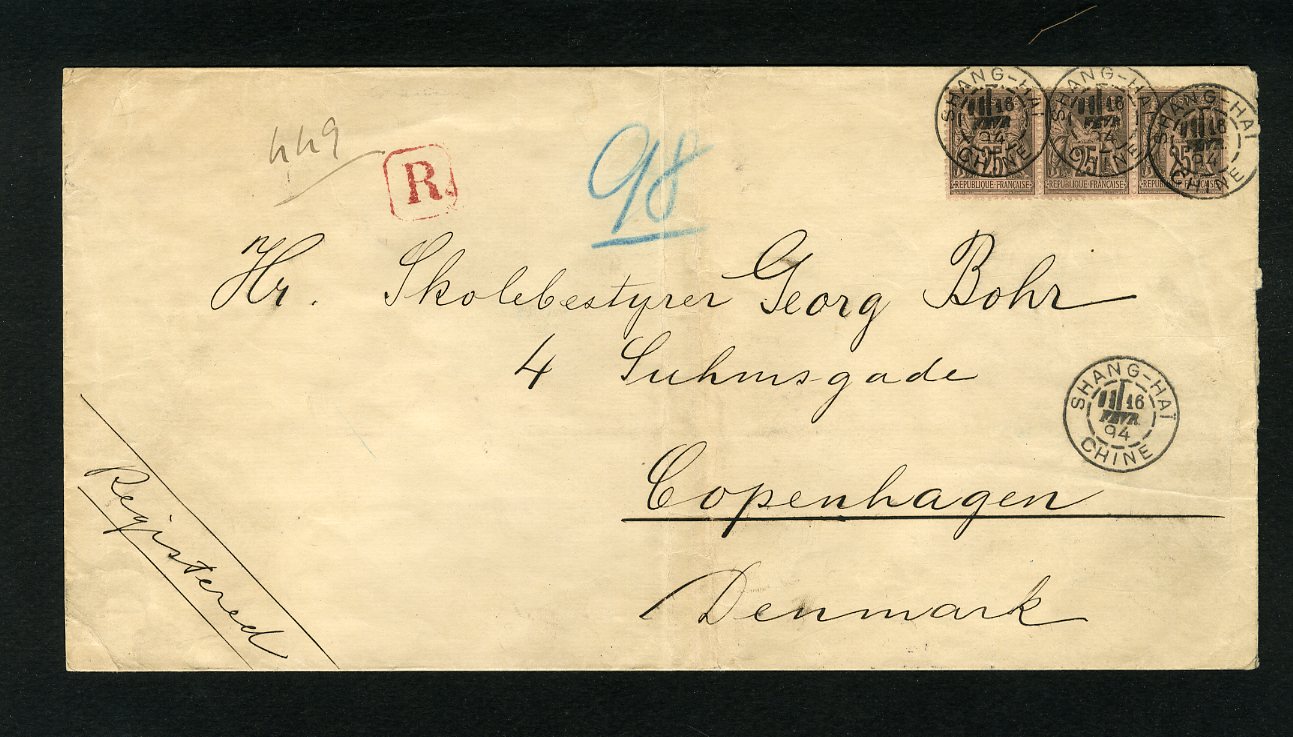 449
R.
98
SHANG-HAI
16
FEVR
94
CHINE
SHANG-HAI
16
FEVR
94
CHINE
SHANG-HAI
16
FEVR
94
CHINE
25
25
25
REPUBLIQUE FRANCAISE
REPUBLIQUE FRANCAISE
Hr. Skolebestyrer Georg Bohr
4 Suhmsgade
SHANG-HAI
16
FEVR
94
CHINE
Copenhagen
Denmark
Registered